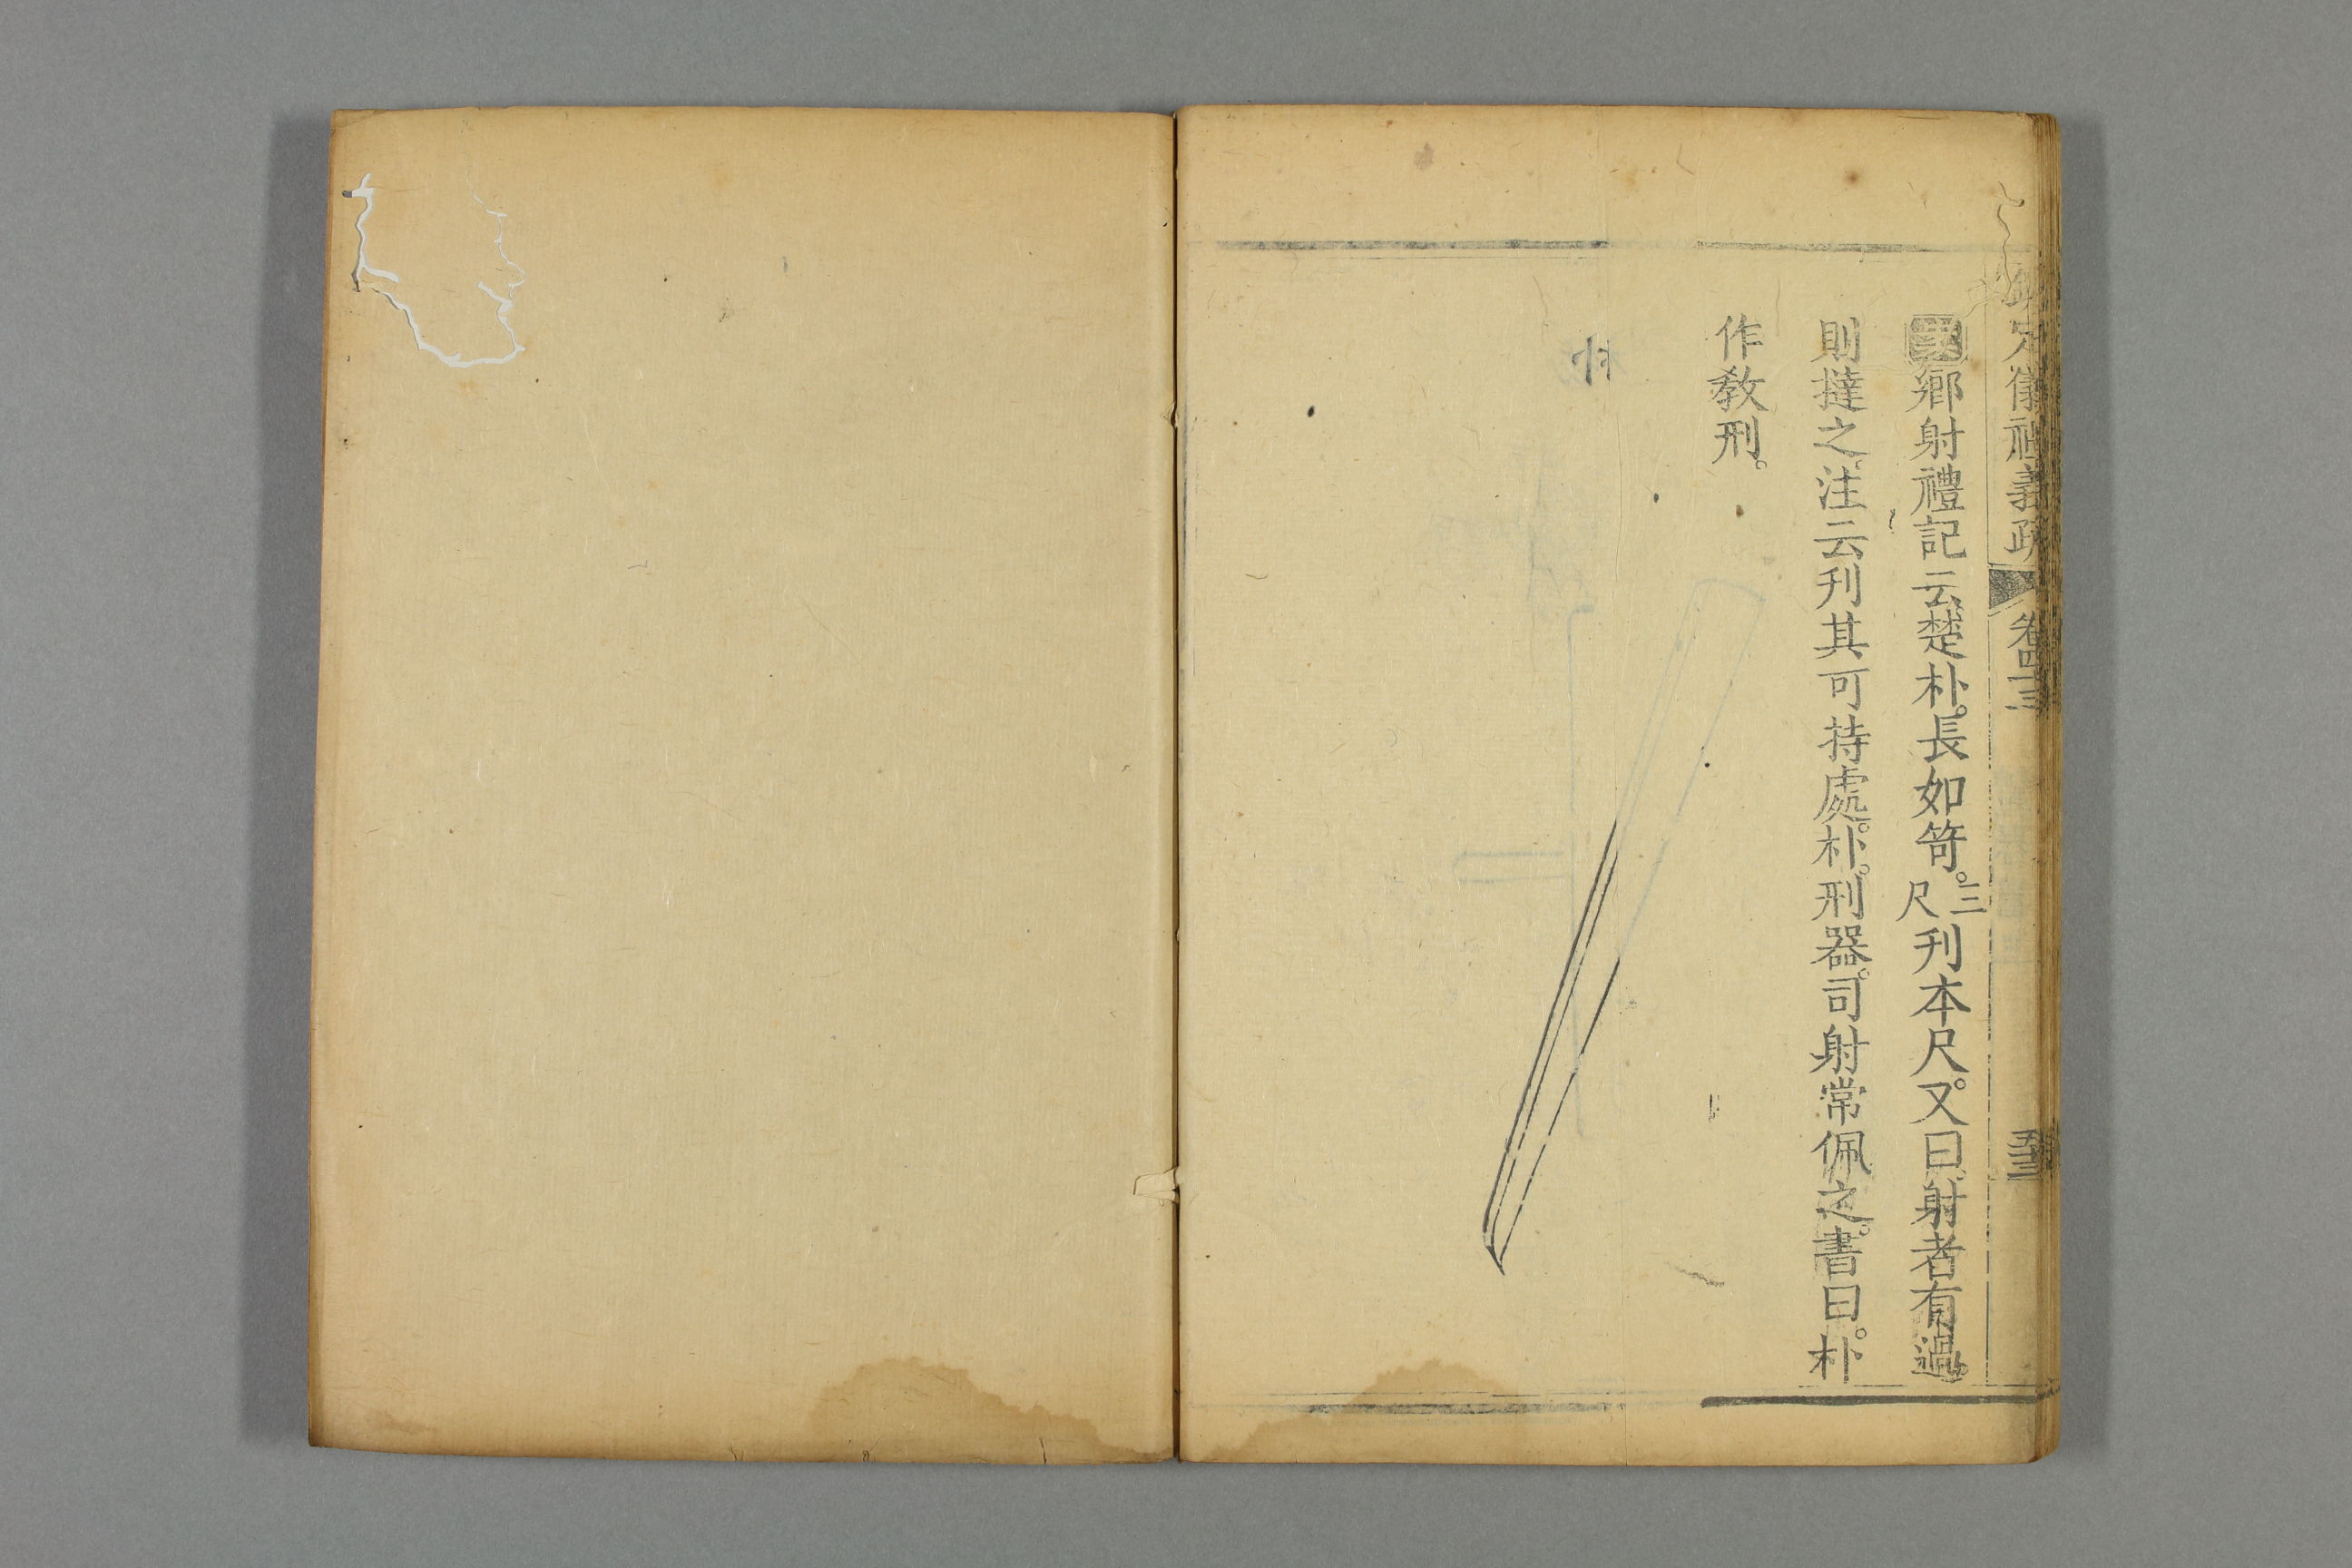 欽定儀禮義疏 卷四十三 五十三
鄉射禮記云楚朴。長如笴。三尺刋本尺。又曰。射者有過。
則撻之。注云刋其可持處。朴。刑器。司射常佩之。書曰。朴
作敎刑。
朴